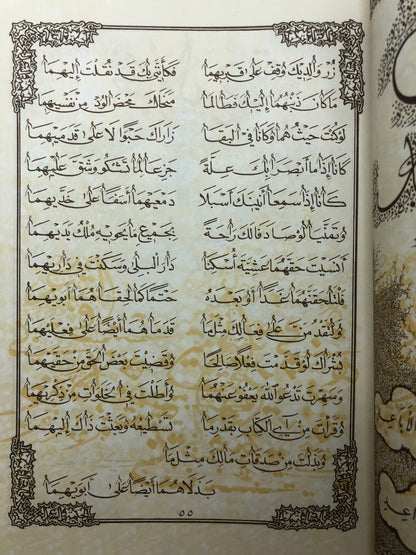 زُرْ وَالِدَيْكَ وَقِفْ عَلَى قَبْرَيْهِمَا فَكَأَنَّنِي بِكَ قَدْ نُقِلْتَ إِلَيْهِمَا
مَا كَانَ ذَنْبُهُمَا إِلَيْكَ فَطَالَمَا مَنَحَاكَ مَحْضَ الْوُدِّ مِنْ نَفْسَيْهِمَا
لَوْ كُنْتَ حَيْثُ هُمَا وَكَانَا فِي الْبَقَا زَارَاكَ حَبْوًا لَا عَلَى قَدَمَيْهِمَا
كَانَا إِذَا مَا أَبْصَرَا بِكَ عِلَّةً جَزِعَا لِمَا تَشْكُو وَشَقَّ عَلَيْهِمَا
كَانَا إِذَا سَمِعَا أَنِينَكَ أَسْبَلَا دَمْعَيْهِمَا أَسَفًا عَلَى خَدَّيْهِمَا
وَتَمَنَّيَا لَوْ صَادَفَا لَكَ رَاحَةً بِجَمِيعِ مَا يَحْوِيهِ مُلْكُ يَدَيْهِمَا
أَنَسِيتَ حَقَّهُمَا عَشِيَّةَ أُسْكِنَا دَارَ الْبِلَى وَسَكَنْتَ فِي دَارَيْهِمَا
فَلْتَلْحَقَنَّهُمَا غَدًا أَوْ بَعْدَهُ حَتْمًا كَمَا لَحِقَا هُمَا أَبَوَيْهِمَا
وَلَتَنْدَمَنَّ عَلَى فِعَالِكَ مِثْلَمَا نَدِمَا هُمَا أَيْضًا عَلَى فِعْلَيْهِمَا
بُشْرَاكَ لَوْ قَدَّمْتَ فِعْلًا صَالِحًا وَقَضَيْتَ بَعْضَ الْحَقِّ مِنْ حَقَّيْهِمَا
وَسَهِرْتَ تَدْعُو اللهَ يَعْفُو عَنْهُمَا وَأَطَلْتَ فِي الْخَلَوَاتِ مِنْ ذِكْرَيْهِمَا
وَقَرَأْتَ مِنْ آيِ الْكِتَابِ بِقَدْرِ مَا تَسْتَطِيعُهُ وَبَعَثْتَ ذَاكَ إِلَيْهِمَا
وَبَذَلْتَ مِنْ صَدَقَاتِ مَالِكَ مِثْلَمَا
بَذَلَا هُمَا أَيْضًا عَلَى أَبَوَيْهِمَا
٥٥